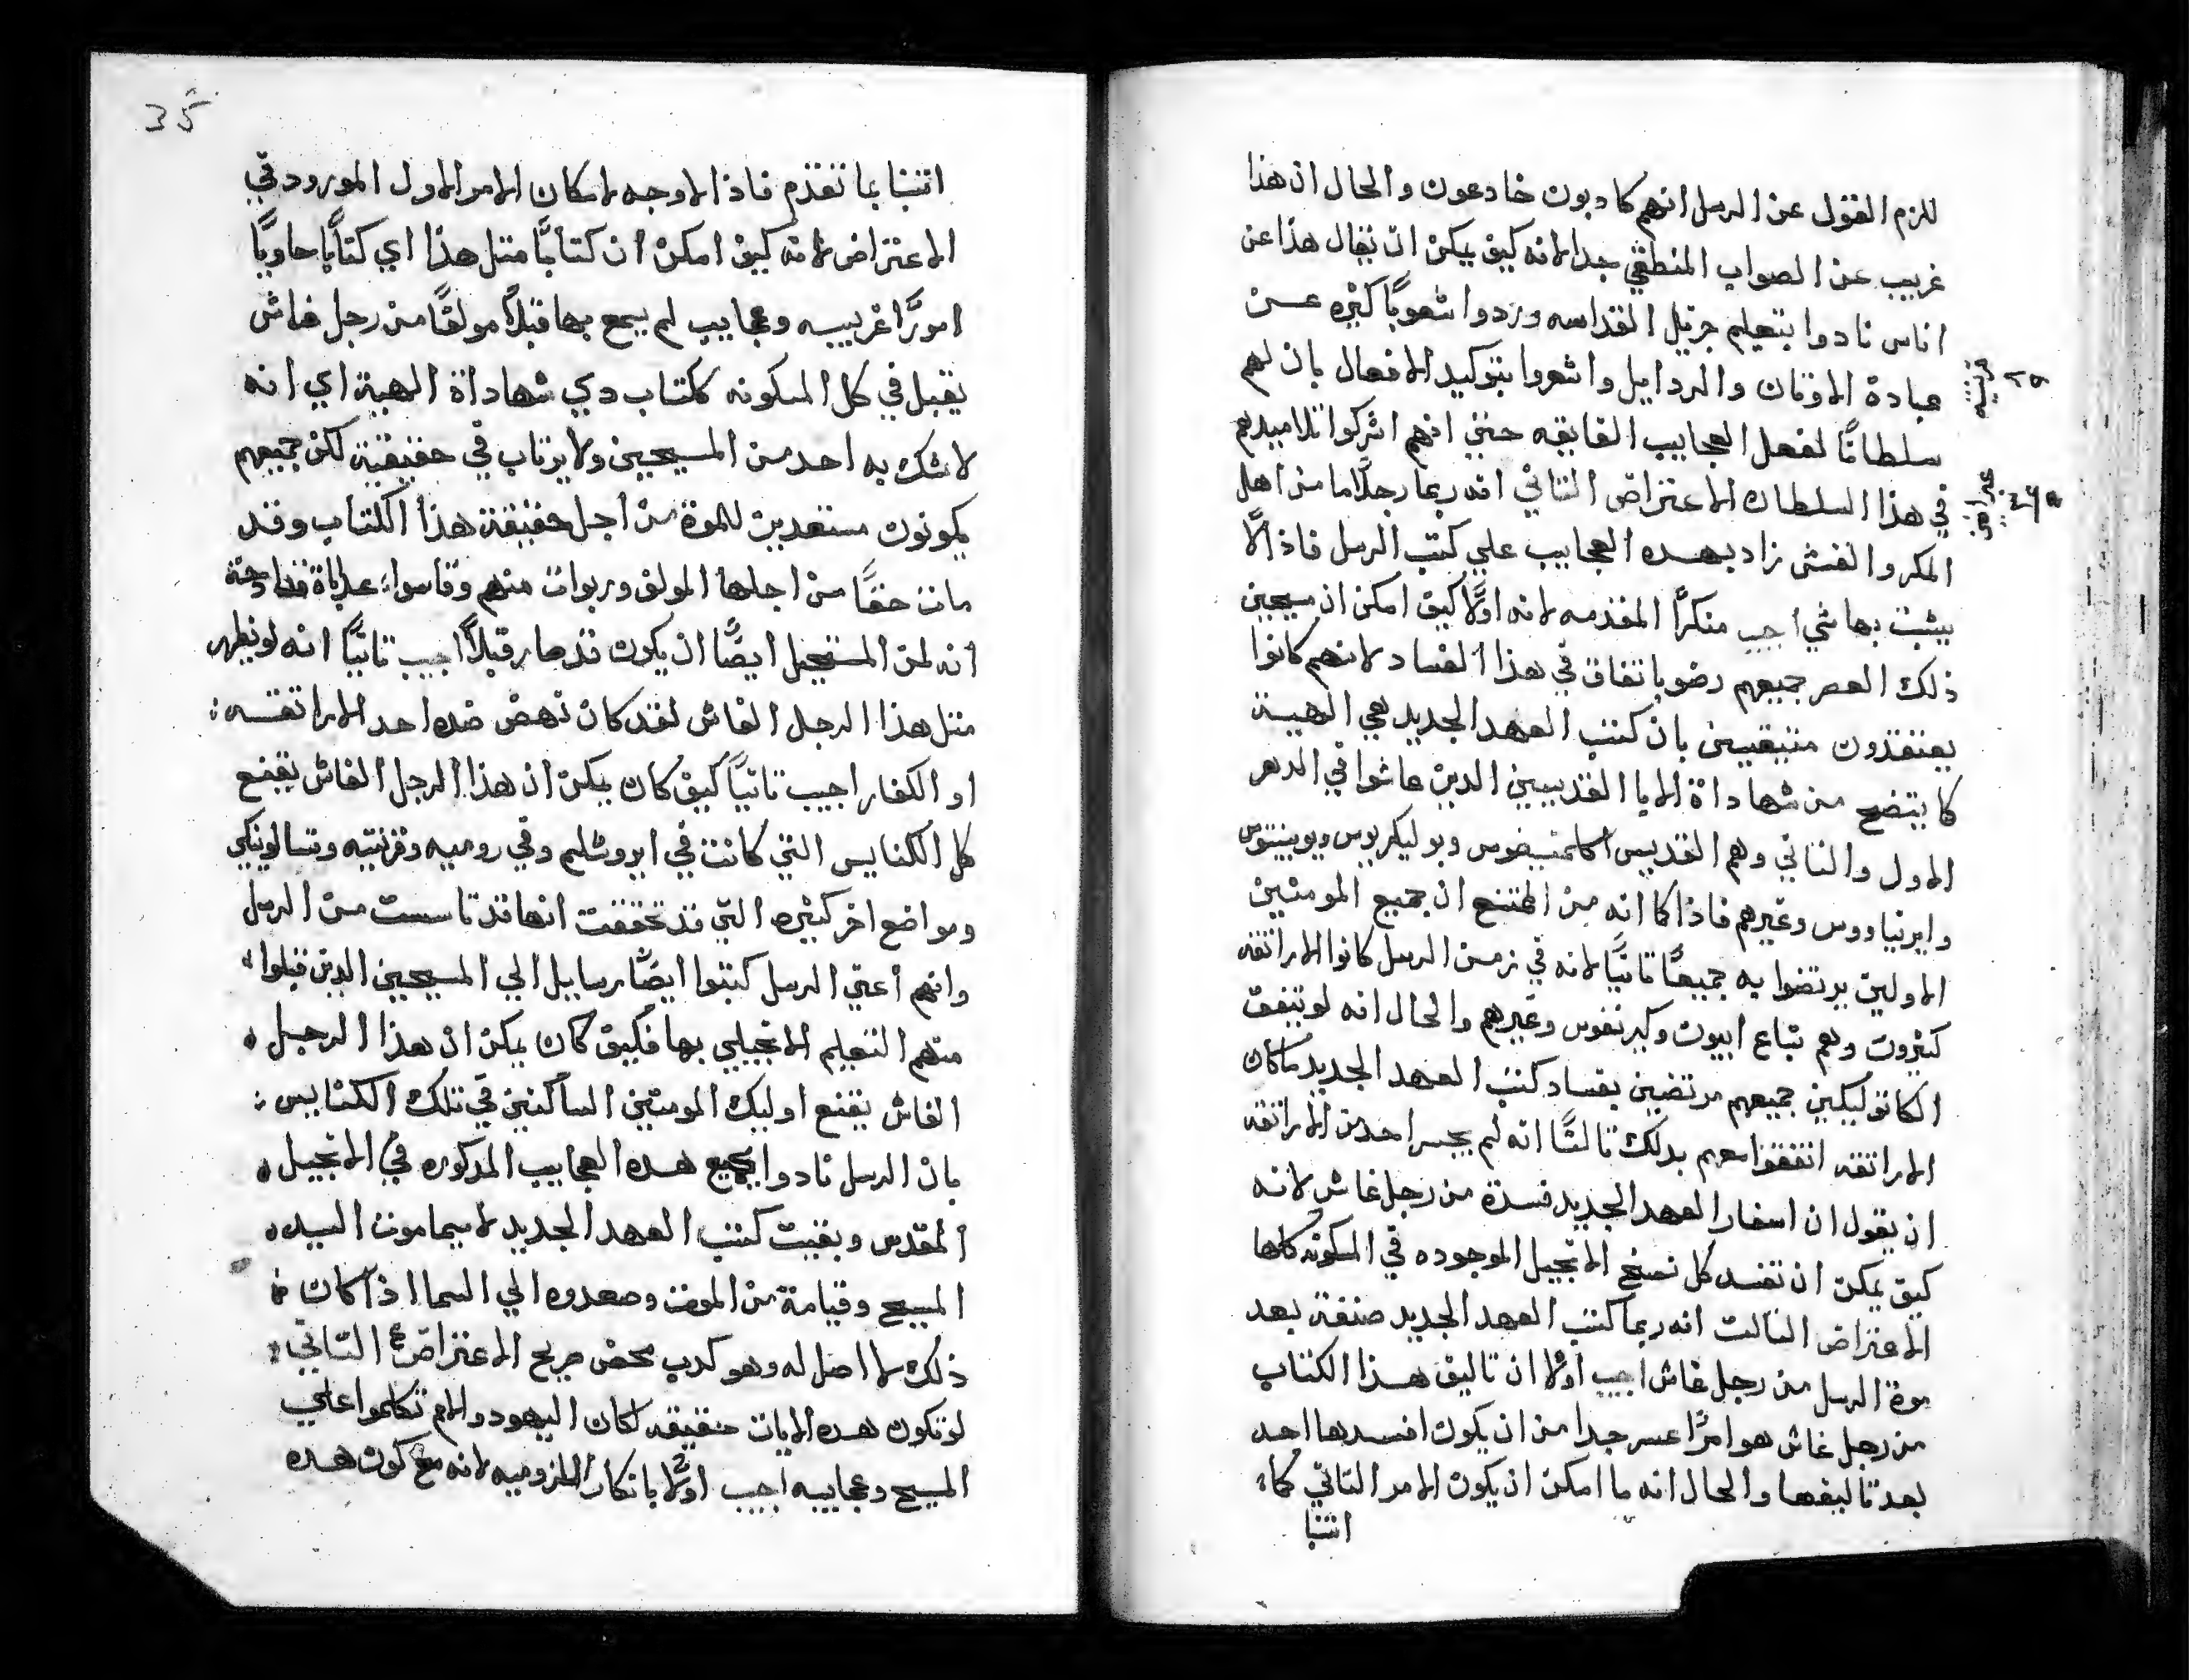 للزم القول عن الرسل انهم كادبون خادعون والحال ان هذا
غريب عن الصواب المنطقي جدا لانه كيف يمكن ان يقال هذا عن
اناس نادوا بتعليم جزيل القداسه وردوا شعوبًا كثيره عن
عبادة الاوتان والردايل واشعروا بتوكيد الافعال بان لهم
سلطانًا لفعل العجايب الفايقه حتي انهم اشركوا تلاميدهم
في هذا السلطان الاعتراض التاني انه ربما رجلًا ما من اهل
المكر والغش زاد بهده العجايب علي كتب الرسل فاذا لا
يتبت بها شي اجيب منكرًا المقدمه لانه اولًا كيف امكن ان مسيحيين
ذلك العصر جميعهم رضوا باتفاق في هذا الفساد لانهم كانوا
يعتقدون متيقنين بان كتب العهد الجديد هي الهية
كما يتضح من شهاداة الابا القديسين الدين عاشوا في الدهر
الاول والتاني وهم القديس اكلمنضوس وبوليكربوس ويوستينوس
وايريناووس وغيرهم فاذا كما انه من الممتنع ان جميع المومنين
الاولين يرتضوا به جميعًا تانيًا لانه في زمن الرسل كانوا الاراتقه
كتيرون وهم تباع ابيون وكيرنتوس وغيرهم والحال انه لو يتفق
الكاتوليكيين جميعهم مرتضيين بفساد كتب العهد الجديد ما كان
الاراتقه اتفقوا معهم بدلك تالتًا انه لم يجسر احد من الاراتقه
ان يقول ان اسفار العهد الجديد فسدة من رجل غاش لانه
كيف يمكن ان تفسد كل نسخ الانجيل الموجوده في المسكونه كلها
الاعتراض التالت انه ربما كتب العهد الجديد صنفة بعد
موة الرسل من رجل غاش اجيب اولًا ان تاليف هذا الكتاب
من رجل غاش هو امرًا عسر جدا من ان يكون افسدها احد
بعد تاليفها والحال انه ما امكن ان يكون الامر التاني كما
اتبتنا
35
اتبتنا بما تقدم فاذا لا وجه لامكان الامر الاول المورود في
الاعتراض لانه كيف امكن ان كتابًا متل هذا اي كتابًا حاويًا
امورًا غريبه وعجايب لم يسمع بها قبلًا مولفًا من رجل غاش
يقبل في كل المسكونه ككتاب دي شهاداة الهية اي انه
لا شك به احد من المسيحيين ولا يرتاب في حقيقته لكن جميعهم
يكونون مستعدين للموة من اجل حقيقة هذا الكتاب وقد
مات حقًا من اجلها الوف وربوات منهم وقاسوا عداباة فداحة
انه لمن المستحيل ايضًا ان يكون قد صار قبلًا اجيب تانيًا انه لو يظهر
متل هذا الرجل الغاش لقد كان نهض ضده احد الاراتقه
او الكفار اجيب تانيًا كيف كان يمكن ان هذا الرجل الغاش يقنع
كل الكنايس التي كانت في ايروشليم وفي روميه وقرنتيه وتسالونيكي
ومواضع اخر كثيره التي قد تحققت انها قد تاسست من الرسل
وانهم اعني الرسل كتبوا ايضًا رسايل الي المسيحيين الدين قبلوا
منهم التعليم الانجيلي بها فكيف كان يمكن ان هذا الرجل
الغاش يقنع اوليك المومنين الساكنين في تلك الكنايس
بان الرسل نادوا بجميع هده العجايب المدكوره في الانجيل
المقدس وبقيت كتب العهد الجديد لا سيما موت السيد
المسيح وقيامة من الموت وصعدوه الي السما اذا كان
ذلك لا اصل له وهو كدب محض صريح الاعتراض التاني
لو تكون هده الايات حقيقه لكان اليهود والامم تكلموا علي
المسيح وعجايبه اجيب اولًا بانكار الملزوميه لانه مع كون هده